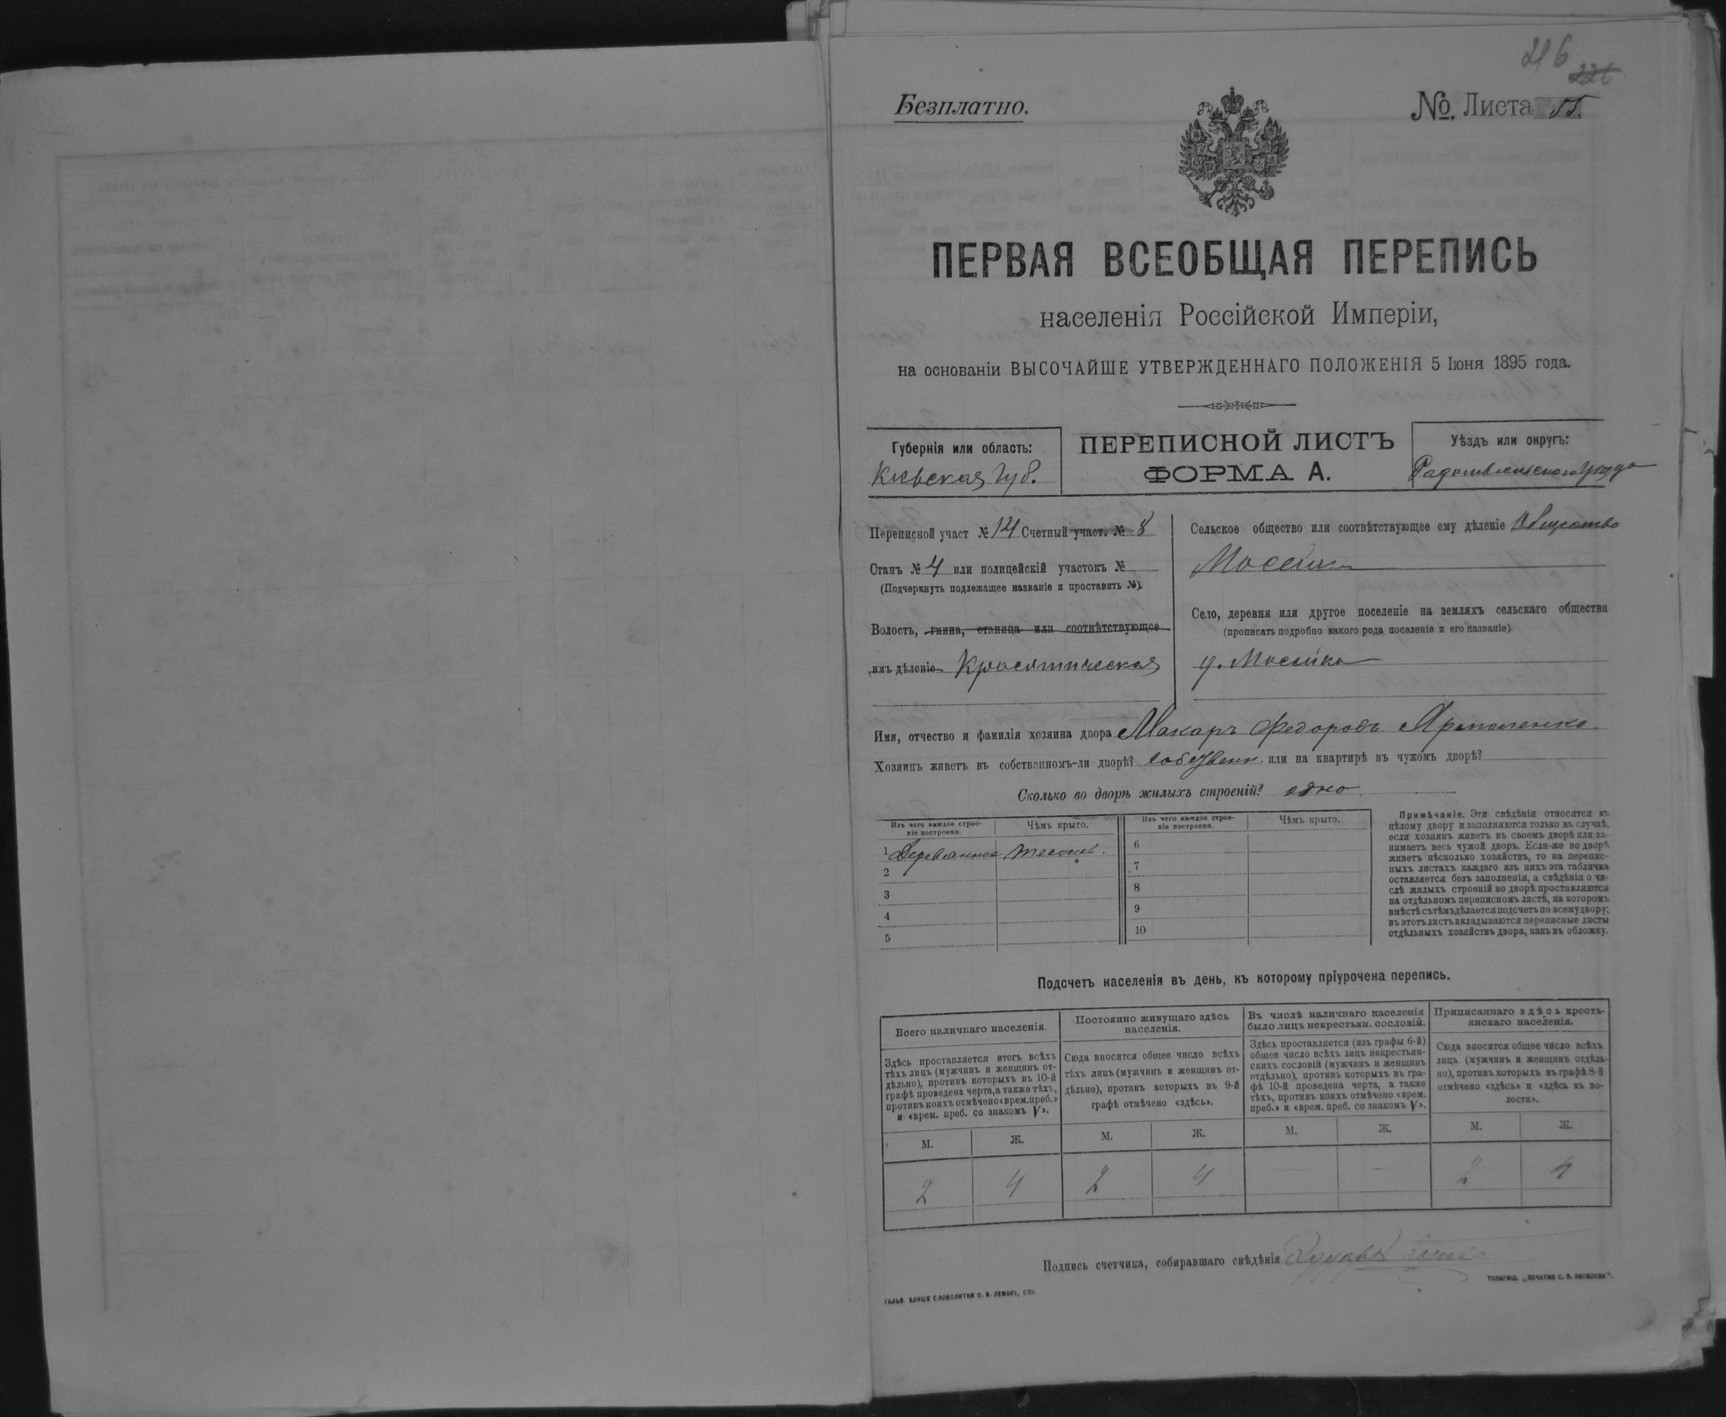 216
226
Безплатно.
№ Листа 55.
ПЕРВАЯ ВСЕОБЩАЯ ПЕРЕПИСЬ
населенія Россійской Имперіи,
на основаніи ВЫСОЧАЙШЕ УТВЕРЖДЕННАГО ПОЛОЖЕНІЯ 5 Іюня 1895 года.
Губернія или область:
Кіевская Губ.
ПЕРЕПИСНОЙ ЛИСТЪ
ФОРМА А.
Уѣздъ или округъ:
Радомысльскаго уѣзда
Переписной участ № 14 Счетный участ. № 8
Станъ № 4 или полицейскій участокъ №
(Подчеркнуть подлежащее названіе и проставить №).
Волость, гмина, станица или соотвѣтствующее
имъ дѣленіе Красятическая
Сельское общество или соотвѣтствующее ему дѣленіе Общество
Село, деревня или другое поселеніе на земляхъ сельскаго общества
(прописать подробно какого рода поселеніе и его названіе)
Имя, отчество и фамилія хозяина двора Макаръ Федоровъ
Хозяинъ живетъ въ собственномъ-ли дворѣ? собствен. или на квартирѣ въ чужомъ дворѣ?
Сколько во дворѣ жилыхъ строеній? одно
Изъ чего каждое строеніе построено.
Чѣмъ крыто.
Изъ чего каждое строеніе построено.
Чѣмъ крыто.
1 Деревянное тесомъ.
2
3
4
5
6
7
8
9
10
Примѣчаніе. Эти свѣдѣнія относятся къ
цѣлому двору и заполняются только въ случаѣ,
если хозяинъ живетъ въ своемъ дворѣ или за-
нимаетъ весь чужой дворъ. Если-же во дворѣ
живетъ нѣсколько хозяйствъ, то на перепис-
ныхъ листахъ каждаго изъ нихъ эта табличка
оставляется безъ заполненія, а свѣдѣнія о чи-
слѣ жилыхъ строеній во дворѣ проставляются
на отдѣльномъ переписномъ листѣ, на которомъ
вмѣстѣ съ тѣмъ дѣлается подсчетъ по всему двору;
въ этотъ листъ вкладываются переписные листы
отдѣльныхъ хозяйствъ двора, какъ въ обложку.
Подсчетъ населенія въ день, къ которому пріурочена перепись.
Всего наличнаго населенія.
Здѣсь проставляется итогъ всѣхъ
тѣхъ лицъ (мужчинъ и женщинъ от-
дѣльно), противъ которыхъ въ 10-й
графѣ проведена черта, а также тѣхъ,
противъ коихъ отмѣчено «врем. преб.»
и «врем. преб. со знакомъ V».
Постоянно живущаго здѣсь
населенія.
Сюда вносится общее число всѣхъ
тѣхъ лицъ (мужчинъ и женщинъ от-
дѣльно), противъ которыхъ въ 9-й
графѣ отмѣчено «здѣсь».
Въ числѣ наличнаго населенія
было лицъ некрестьян. сословій.
Здѣсь проставляется (изъ графы 6-й)
общее число всѣхъ лицъ некрестьян-
скихъ сословій (мужчинъ и женщинъ
отдѣльно), противъ которыхъ въ гра-
фѣ 10-й проведена черта, а также
тѣхъ, противъ коихъ отмѣчено «врем.
преб.» и «врем. преб. со знакомъ V».
Приписаннаго здѣсь кресть-
янскаго населенія.
Сюда вносится общее число всѣхъ
лицъ (мужчинъ и женщинъ отдѣль-
но), противъ которыхъ въ графѣ 8-й
отмѣчено «здѣсь» и «здѣсь къ во-
лости».
М. Ж. М. Ж. М. Ж. М. Ж.
2 4 2 4 — — 2 4
Подпись счетчика, собиравшаго свѣдѣнія
ГАЛЬВ. КЛИШЕ СЛОВОЛИТНИ О. И. ЛЕМАНЪ, СПБ.
ТОВАРИЩ. „ПЕЧАТНЯ С. П. ЯКОВЛЕВА“.